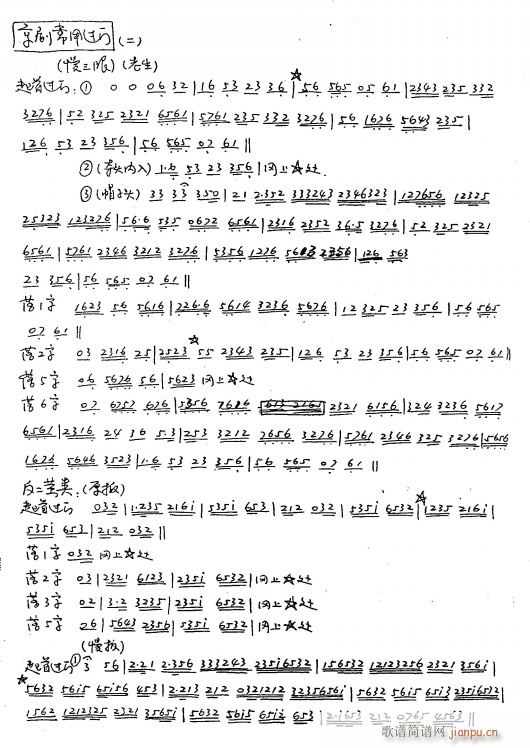 京剧常用过门 (二)
(慢三眼) (老生)
起首过门: ① 0 0 06 32 | 16 53 23 36 | ☆56 565 05 61 | 2343 235 332
3276 | 52 325 2321 6561 | 5761 235 332 3276 | 56 1626 5643 235 |
126 53 23 356 | 56 565 07 61 ‖
② 1·6 53 23 356 | 同上☆处
③ 33 3 350 | 21 2·352 333243 2346323 | 127656 12325
25323 123276 | 56·6 535 0672 6561 | 2316 2352 36·5 3276 | 52 325 2321
6561 | 5761 2346 3212 3276 | 5356 1276 2356 | 126 563
23 356 | 56 565 07 61 ‖
落1字 1623 56 5616 | 7266 5614 3236 5676 | 12 325 23 356 | 56 565
07 61 ‖
落2字 03 2316 25 | 2523 ☆55 2343 235 | 126 53 23 356 | 56 565 07 61 ‖
落5字 06 5676 56 | 5623 同上☆处
落6字 07 6757 676 | 5356 7686 2321 6156 | 324 3236 5617
6561 | 2316 24 36 5·3 | 253 3212 7656 3276 | 5761 2346 325 3276 | 5656
1676 5646 3523 | 1·6 53 23 356 | 56 565 07 61 ‖
反二黄类: (原板)
起首过门 032 | 1·235 216i | 535i 653 | 212 032 | 535i 6532 | ☆1235 216i |
535i 653 | 212 032 ‖
落1字 032 同上☆处
落2字 03 | 2321 6123 | 235i 6532 | 同上☆处
落3字 02 | 3·2 3235 | 235i 6532 | 同上☆处
落5字 06 | 5643 2356 | 535i 6532 | 同上☆处
(慢板)
起首过门 ① 3 56 | 2·21 2·356 333243 235i6532 | 156532 12123256 2321 356i |
☆5632 56i5 6i56 453 | 2·213 212 0321212 3235656i | 5632 56i5 6i53 235i6532 |
1562 1212325 235i 6532 | 5632 56i5 6i2i 653 | 2·i653 212 0765 4563 |
歌谱简谱网
jianpu.cn